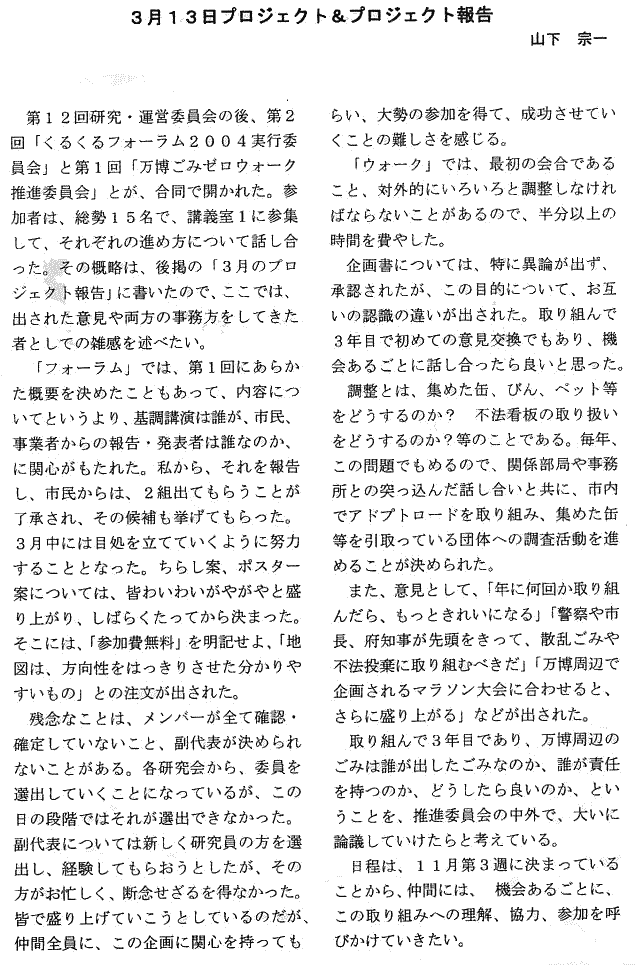 ３月１３日プロジェクト＆プロジェクト報告
山下　宗一
第１２回研究・運営委員会の後、第２
回「くるくるフォーラム２００４実行委
員会」と第１回「万博ごみゼロウォーク
推進委員会」とが、合同で開かれた。参
加者は、総勢１５名で、講義室１に参集
して、それぞれの進め方について話し合
った。その概略は、後掲の「３月のプロ
ジェクト報告」に書いたので、ここでは、
出された意見や両方の事務方をしてきた
者としての雑感を述べたい。
「フォーラム」では、第１回にあらか
た概要を決めたこともあって、内容につ
いてというより、基調講演は誰が、市民、
事業者からの報告・発表者は誰なのか、
に関心がもたれた。私から、それを報告
し、市民からは、２組出てもらうことが
了承され、その候補も挙げてもらった。
３月中には目処を立てていくように努力
することとなった。ちらし案、ポスター
案については、皆わいわいがやがやと盛
り上がり、しばらくたってから決まった。
そこには、「参加費無料」を明記せよ、「地
図は、方向性をはっきりさせた分かりや
すいもの」との注文が出された。
残念なことは、メンバーが全て確認・
確定していないこと、副代表が決められ
ないことがある。各研究会から、委員を
選出していくことになっているが、この
日の段階ではそれが選出できなかった。
副代表については新しく研究員の方を選
出し、経験してもらおうとしたが、その
方がお忙しく、断念せざるを得なかった。
皆で盛り上げていこうとしているのだが、
仲間全員に、この企画に関心を持っても
らい、大勢の参加を得て、成功させてい
くことの難しさを感じる。
「ウォーク」では、最初の会合である
こと、対外的にいろいろと調整しなけれ
ばならないことがあるので、半分以上の
時間を費やした。
企画書については、特に異論が出ず、
承認されたが、この目的について、お互
いの認識の違いが出された。取り組んで
３年目で初めての意見交換でもあり、機
会あるごとに話し合ったら良いと思った。
調整とは、集めた缶、びん、ペット等
をどうするのか？　不法看板の取り扱い
をどうするのか？等のことである。毎年、
この問題でもめるので、関係部局や事務
所との突っ込んだ話し合いと共に、市内
でアドプトロードを取り組み、集めた缶
等を引取っている団体への調査活動を進
めることが決められた。
また、意見として、「年に何回か取り組
んだら、もっときれいになる」「警察や市
長、府知事が先頭をきって、散乱ごみや
不法投棄に取り組むべきだ」「万博周辺で
企画されるマラソン大会に合わせると、
さらに盛り上がる」などが出された。
取り組んで３年目であり、万博周辺の
ごみは誰が出したごみなのか、誰が責任
を持つのか、どうしたら良いのか、とい
うことを、推進委員会の中外で、大いに
論議していけたらと考えている。
日程は、１１月第３週に決まっている
ことから、仲間には、　機会あるごとに、
この取り組みへの理解、協力、参加を呼
びかけていきたい。